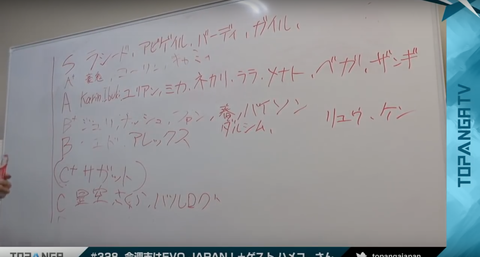 S ラシード、アビゲイル、バーディ、ガイル、
A⁺ 豪鬼、コーリン、キャミィ
A Karin、ユリアン、ミカ、ネカリ、ララ、メナト、ベガ、ザンギ
B⁺ ジュリ、ナッシュ、春、バイソン リュウ、ケン
ダルシム、
B エド アレックス
(C⁺ サガット)
C さくら、
TOPANGA TV
TOPANGA #338 今週末はEVO JAPAN!+ゲスト ハメコ。さん topangajapan